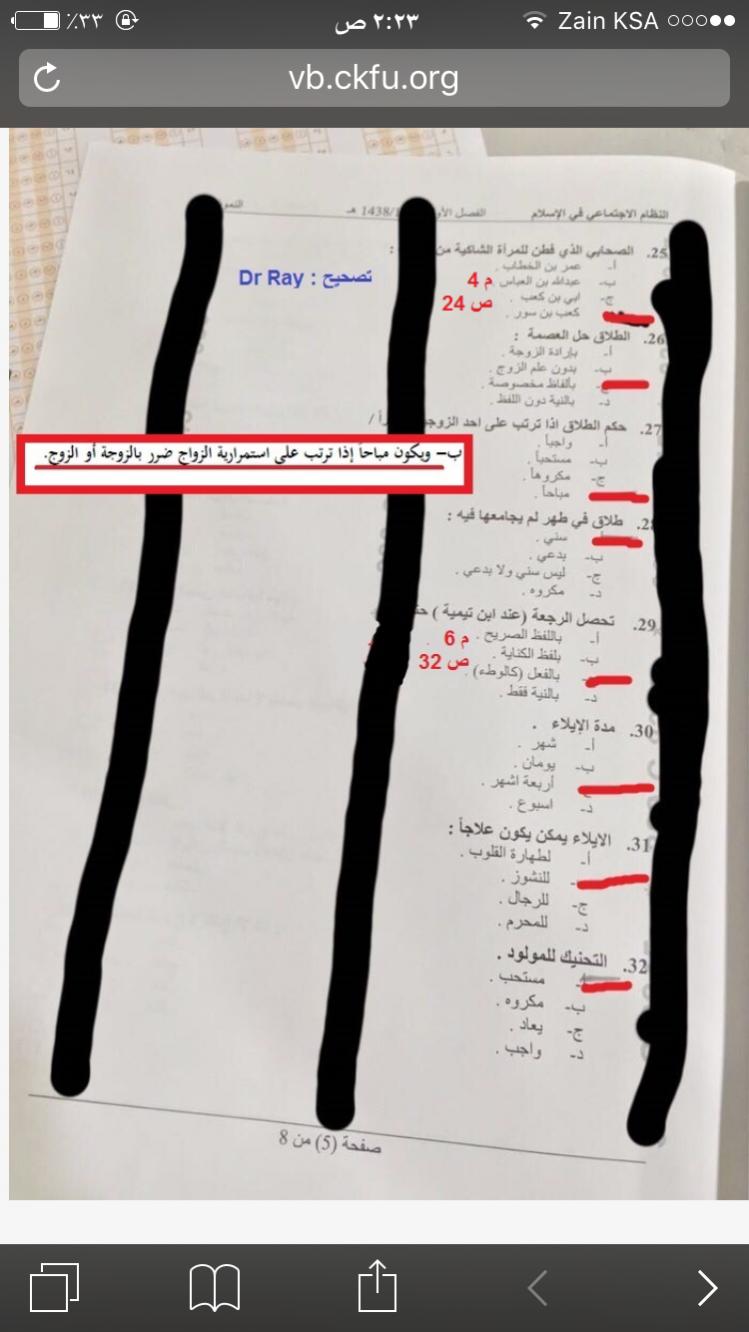 ٪٣٣ ٢:٢٣ ص Zain KSA
vb.ckfu.org
النظام الاجتماعي في الإسلام الفصل 1438/ هـ
25. الصحابي الذي فطن للمرأة الشاكية من :
أ- عمر بن الخطاب .
ب- عبدالله بن العباس
ج- ابي بن كعب .
كعب بن سور .
م 4
ص 24
تصحيح : Dr Ray
26. الطلاق حل العصمة :
أ- بإرادة الزوجة .
ب- بدون علم الزوج .
بألفاظ مخصوصة .
د- بالنية دون اللفظ .
27. حكم الطلاق اذا ترتب على احد /
أ- واجباً .
ب- مستحباً .
ج- مكروهاً .
مباحاً .
ب- ويكون مباحاً إذا ترتب على استمرارية الزواج ضرر بالزوجة أو الزوج.
طلاق في طهر لم يجامعها فيه :
سني .
ب- بدعي .
ج- ليس سني ولا بدعي .
د- مكروه .
29. تحصل الرجعة (عند ابن تيمية )
أ- باللفظ الصريح .
ب- بلفظ الكناية .
بالفعل (كالوطء) .
د- بالنية فقط .
م 6
ص 32
30. مدة الإيلاء .
أ- شهر .
ب- يومان .
أربعة اشهر .
د- اسبوع .
31. الايلاء يمكن يكون علاجاً :
أ- لطهارة القلوب .
للنشوز .
ج- للرجال .
د- للمحرم .
32. التحنيك للمولود .
مستحب .
ب- مكروه .
ج- يعاد .
د- واجب .
صفحة (5) من 8